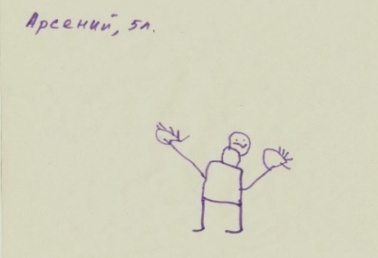 Арсений, 5л.